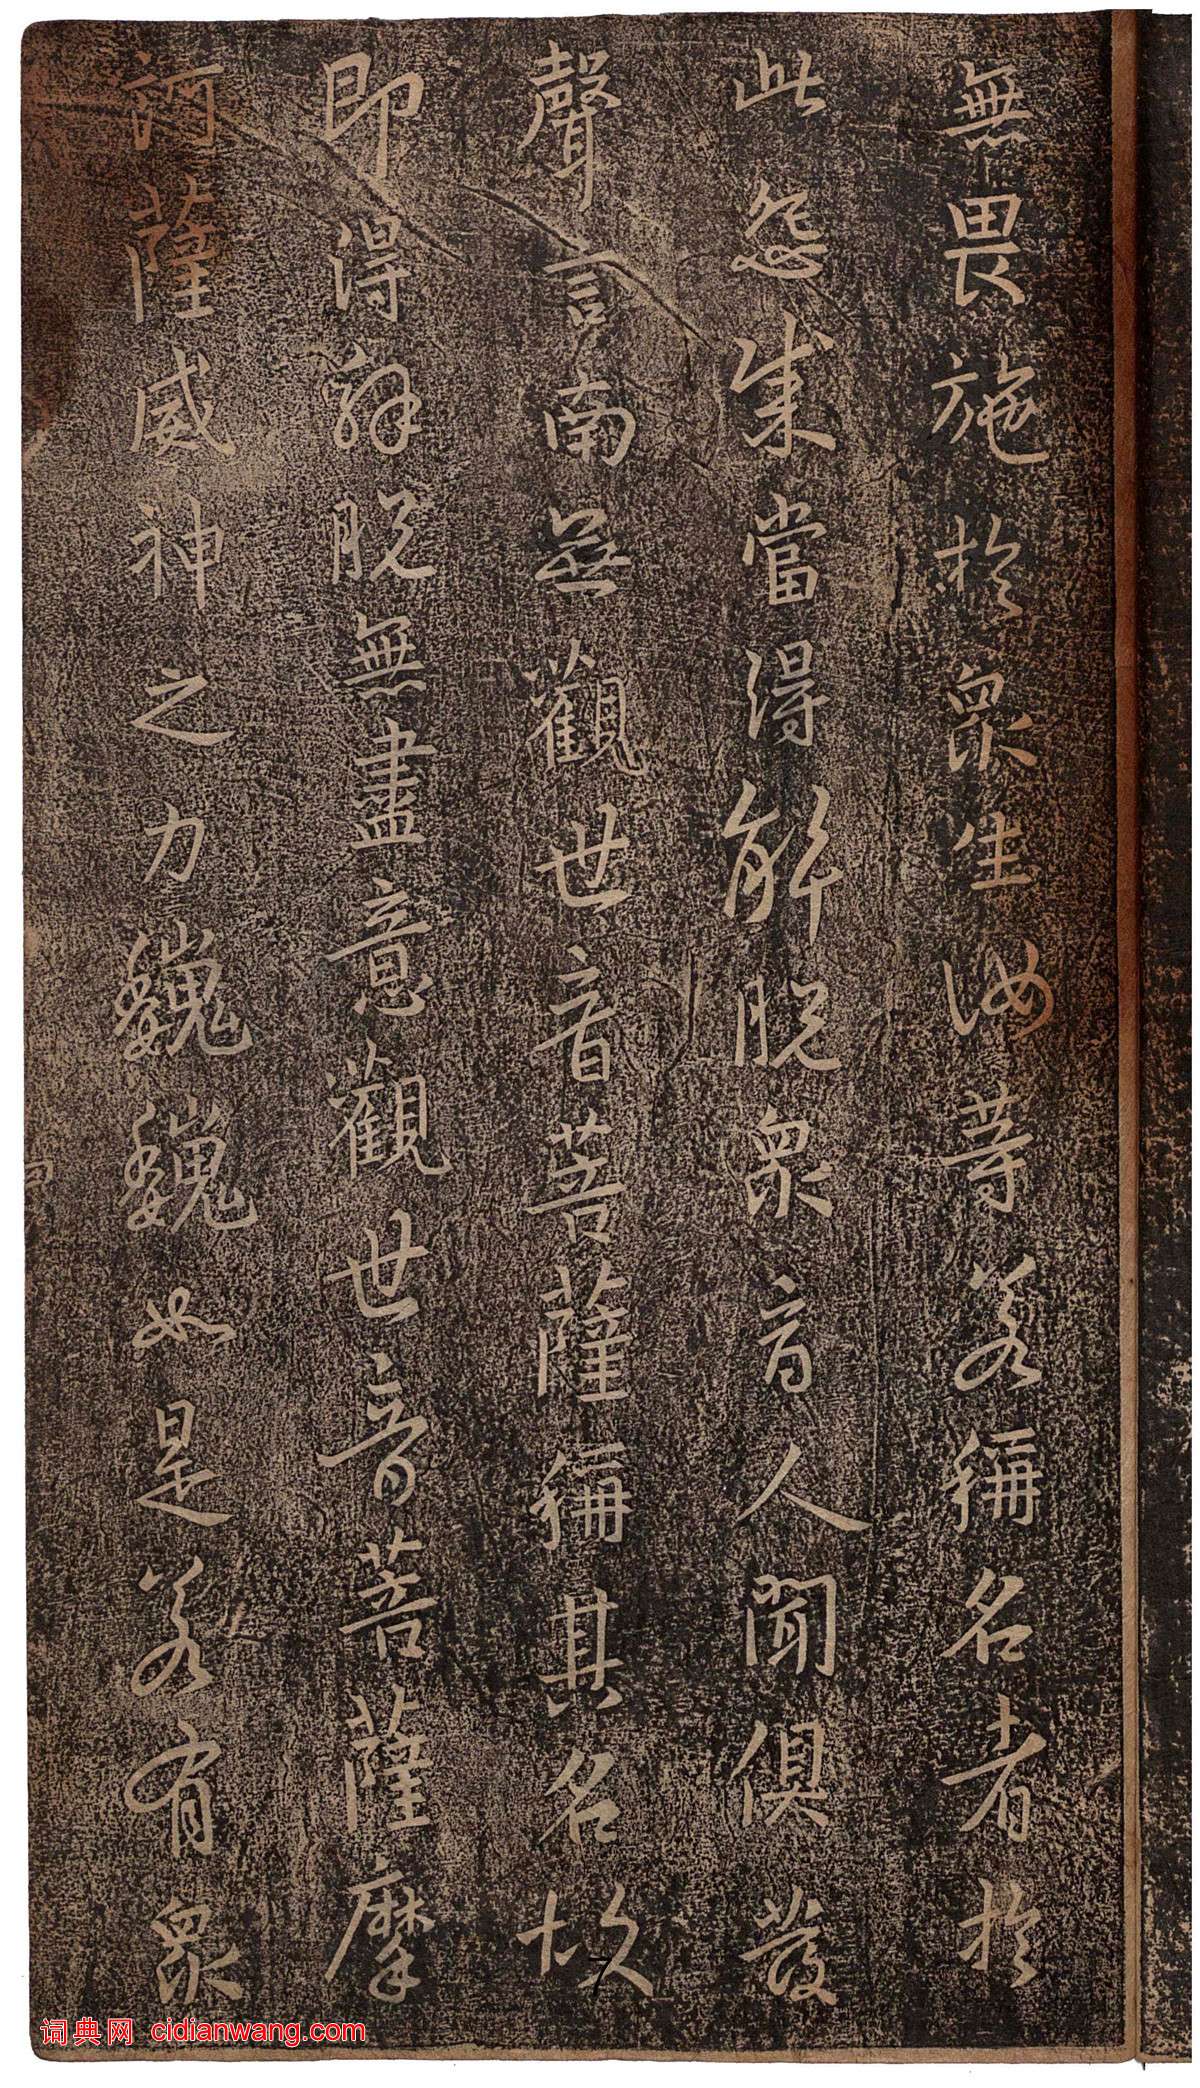 無畏施於衆生汝等若稱名者於
此怨賊當得解脫衆商人聞俱發
聲言南無觀世音菩薩稱其名故
即得解脫無盡意觀世音菩薩摩
訶薩威神之力巍巍如是若有衆
7
词典网 cidianwang.com